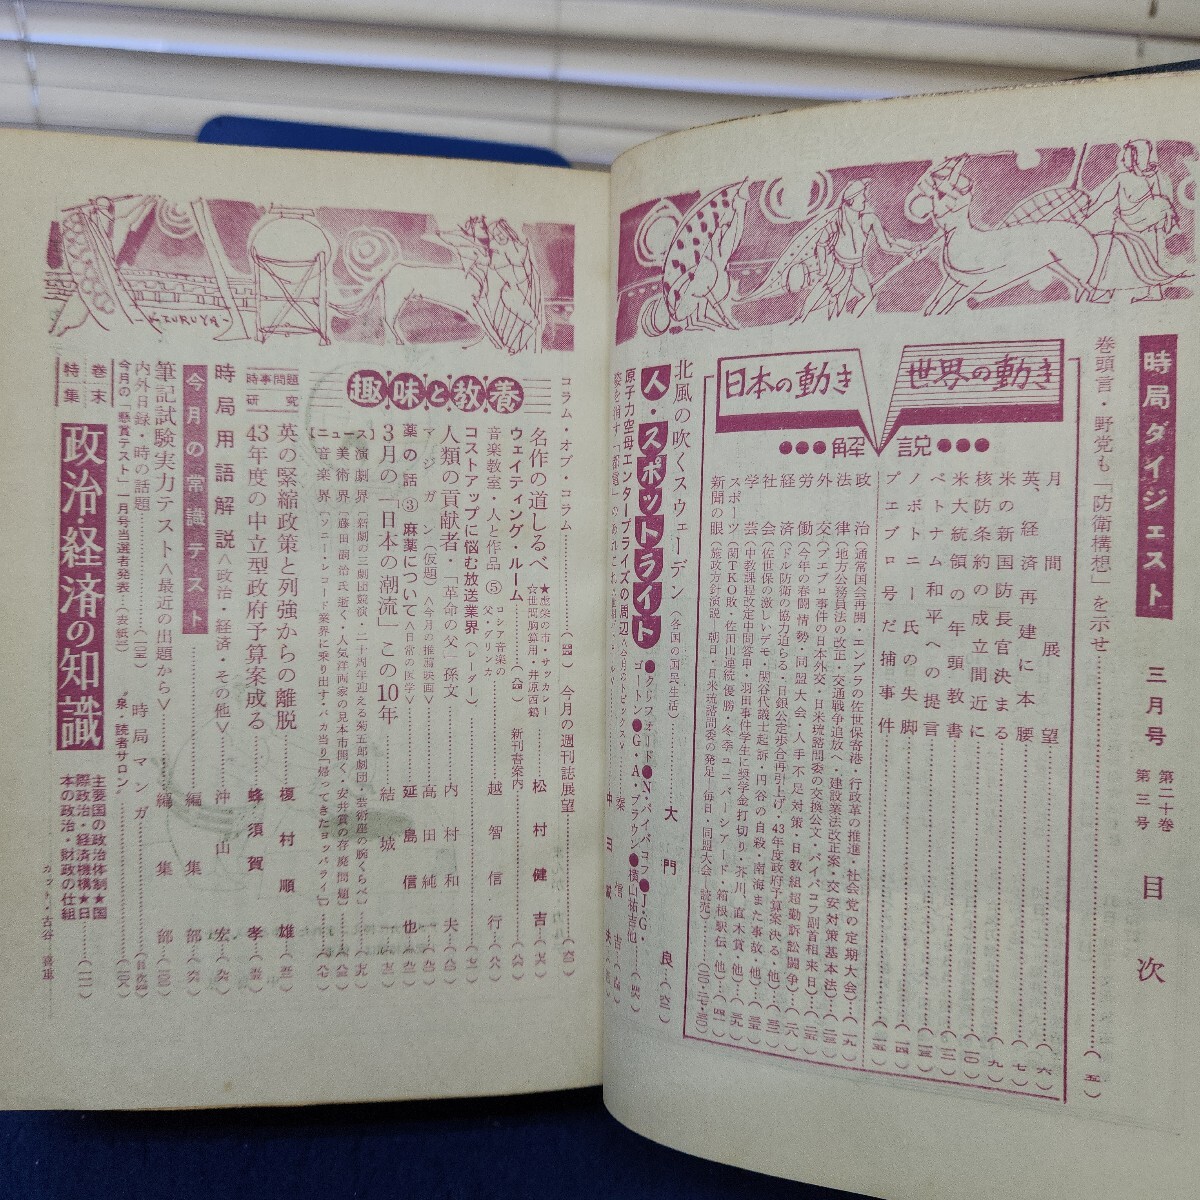 時局ダイジェスト 三月号 第二十巻 第三号 目次
巻頭言・野党も「防衛構想」を示せ……(五)
世界の動き
日本の動き
解説
月間展望……(六)
英、経済再建に本腰……(七)
米の新国防長官決まる……(九)
核防条約の成立間近に……(一〇)
米大統領の年頭教書
ベトナム和平への提言
ノボトニー氏の失脚……(一四)
プエブロ号だ捕事件……(一五)
政治(通常国会再開・エンプラの佐世保寄港・行政改革の推進・社会党の定期大会)……(一九)
法律(地方公務員法の改正・交通戦争追放へ・建設業法改正案・交安対策基本法)
外交(プエブロ事件の日本外交・日米琉諮問委の交換公文・バイバコフ副首相来日)
労働(今年の春闘情勢・同盟大会・人手不足対策・日教組超勤訴訟闘争)……(二八)
経済(ドル防衛の協力迫らる・日銀公定歩合再引上げ・43年度政府予算案決る・他)
社会(佐世保の激しいデモ・関谷代議士起訴・円谷の自殺・南海また事故・他)
学芸(中教課程改定中間答申・羽田事件学生に奨学金打切り・芥川、直木賞・他)
スポーツ(関TKO敗・佐田山連続優勝・冬季ユニバーシアード・箱根駅伝・他)……(四一)
新聞の眼(施政方針演説―朝日・日米琉諮問委の発足―毎日・同盟大会―読売)
北風の吹くスウェーデン(各国の国民生活)……大門良
人・スポットライト ●クリフォード●N・バイバコフ●J・G・ゴートン●G・A・ブラウン●横山祐吉他
原子力空母エンタープライズの周辺<今月のトピックス>……
コラム・オブ・コラム……今月の週刊誌展望……
趣味と教養
名作の道しるべ ★虚栄の市・サッカレー ☆世間胸算用・井原西鶴……松村健吉
ウェイティング・ルーム……新刊書案内
音楽教室・人と作品⑤ ロシア音楽の父・グリンカ……越智信行
コストアップに悩む放送業界(レーダー)
人類の貢献者・「革命の父」孫文……内村和夫
マジガン(仮題)<今月の推薦映画>……高田純
薬の話③麻薬について<日常の医学>……延島信也
3月の「日本の潮流」この10年……結城
【ニュース】演劇界(新劇の三劇団競演・二十周年迎える菊五郎劇団・芸術座の腕くらべ)
美術界(藤田嗣治氏逝く・人気洋画家の見本市開く・安井賞の存廃問題)
音楽界(ソニー・レコード業界に乗り出す・バカ当り「帰ってきたヨッパライ」)
時事問題研究
英の緊縮政策と列強からの離脱……榎村順雄
43年度の中立型政府予算案成る……蜂須賀孝
時局用語解説<政治・経済・その他>……沖山宏
今月の常識テスト……編集部
筆記試験実力テスト<最近の出題から>……編集部
内外日録・時の話題……時局マンガ……
今月の「懸賞テスト」一月号当選者発表……(表紙)“泉・読者サロン”
巻末特集
政治・経済の知識 主要国の政治体制★国際政治・経済機構★日本の政治・財政の仕組
カット・古谷喜重
K.ZURUYA